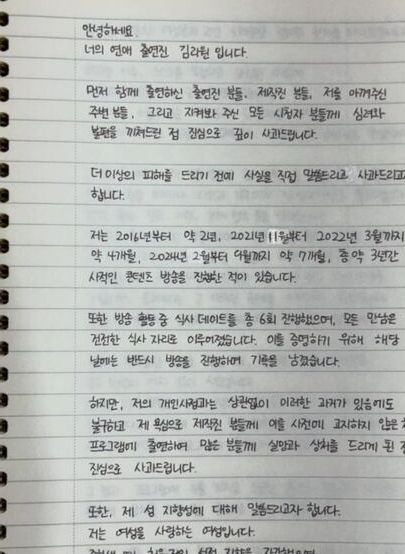 안녕하세요.
너의 연애 출연진 김리원 입니다.
먼저 함께 출연하신 출연진 분들, 제작진 분들, 저를 아껴주신
주변 분들, 그리고 지켜봐 주신 모든 시청자 분들께 심려와
불편을 끼쳐드린 점 진심으로 깊이 사과드립니다.
더 이상의 피해를 드리기 전에 사실을 직접 말씀드리고 사과드리고
합니다.
저는 2016년부터 약 2년, 2021년 11월부터 2022년 3월까지
약 4개월, 2024년 2월부터 9월까지 약 7개월, 총 약 3년간
시적인 콘텐츠 방송을 진행한 적이 있습니다.
또한 방송 활동 중 식사 데이트를 총 6회 진행했으며, 모든 만남은
건전한 식사 자리로 이루어졌습니다. 이를 증명하기 위해 해당
날에는 반드시 방송을 진행하며 기록을 남겼습니다.
하지만, 저의 개인사정과는 상관없이 이러한 과거가 있음에도
불구하고 제 욕심으로 제작진 분들께 이를 사전에 고지하지 않은
프로그램에 출연하여 많은 분들께 실망과 상처를 드리게 된
진심으로 사과드립니다.
또한, 제 성 지향성에 대해 말씀드리고자 합니다.
저는 여성을 사랑하는 여성입니다.